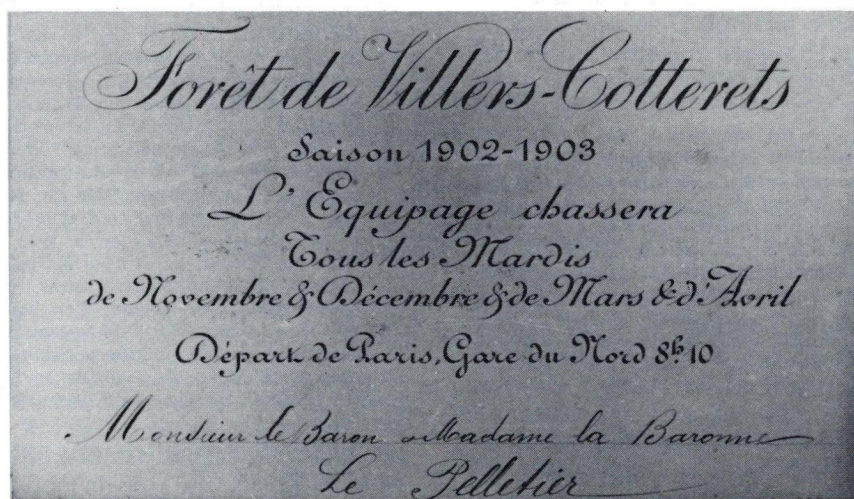 Forêt de Villers-Cotterets
Saison 1902-1903
L'Equipage chassera
Tous les Mardis
de Novembre & Décembre & de Mars & d'Avril
Départ de Paris, Gare du Nord 8h. 10
Monsieur le Baron & Madame la Baronne
Le Pelletier